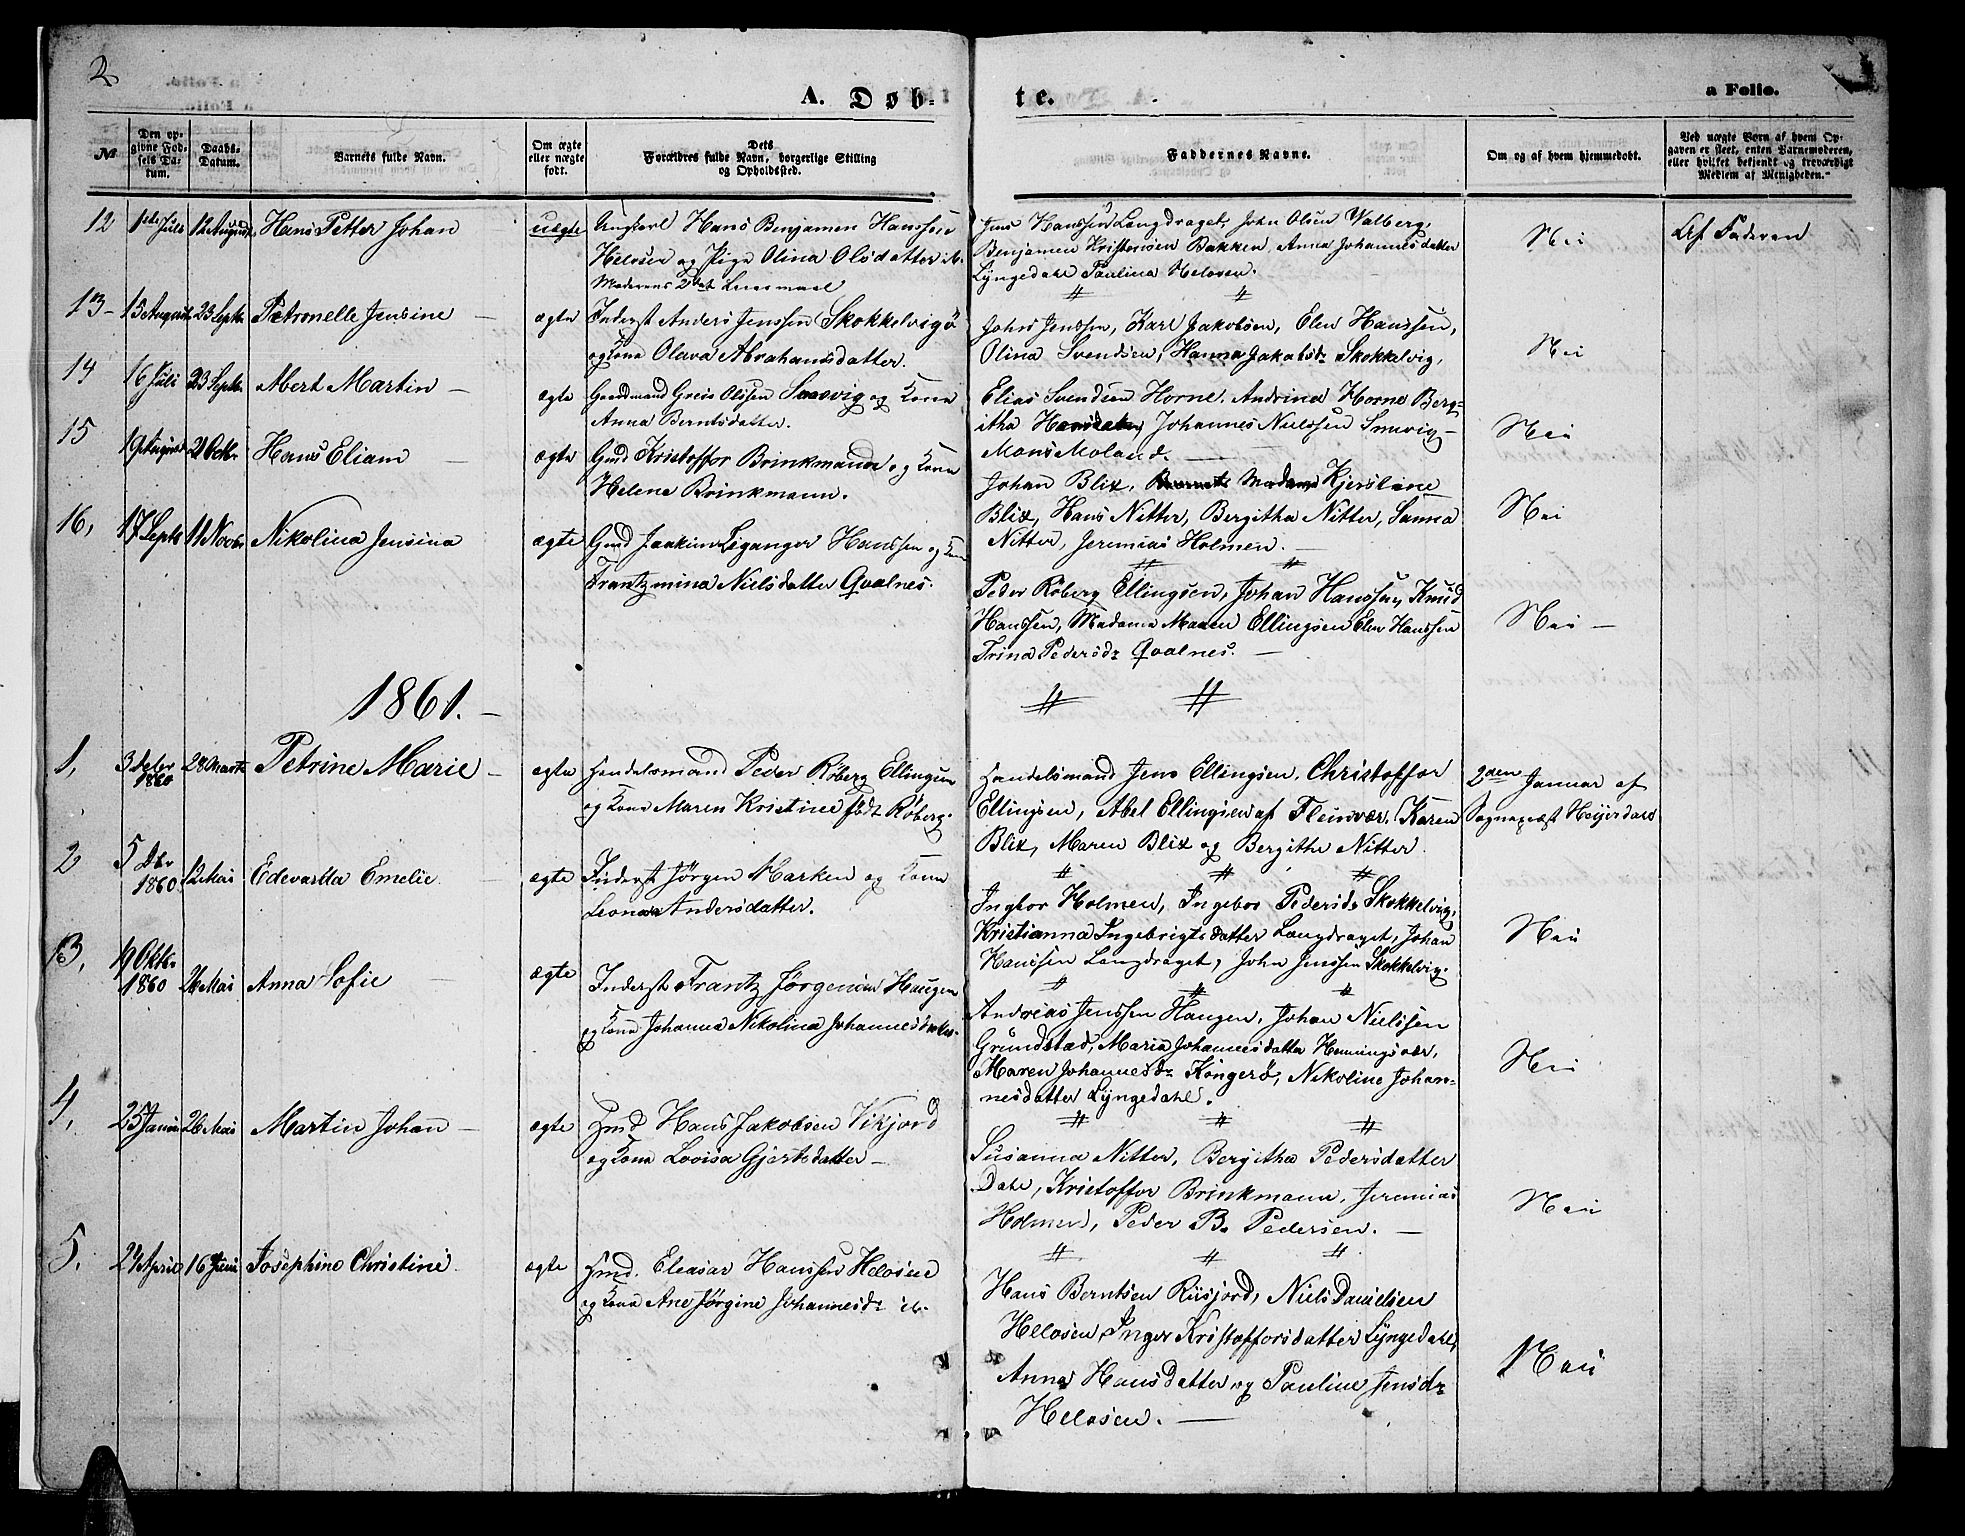 2
A. Døb-
te.
a Folio.
№
Den op-
givne Fød-
sels Da-
tum.
Daabs-
Datum.
Barnets fulde Navn.
Om ægte
eller uægte
født.
Dets
Forældres fulde Navn, borgerlige Stilling
og Opholdssted.
Faddernes Navne.
Om og af hvem hjemmedøbt.
Ved uægte Børn af hvem Op-
gaven er skeet, enten Barnemoderen,
eller hvilket bekjendt og troværdigt
Medlem af Menigheden.
12
1ste Juli
12 August
Hans Petter Johan
uægte
Ungkarl Hans Benjamen Hanssen
Helosen og Pige Olina Olsdatter ib.
Moderens 2det Leiermaal
Jens Hanssen Langdraget, John Olsen Valberg,
Benjamen Kristensen Bakken, Anna Johannesdatter
Lyngedahl Paulina Helosen.
Nei
Af Faderen
13-
15 August
23 Septr
Petronelle Jensine
ægte
Inderst Anders Jenssen Skokkelvigø
og Kona Olava Abrahamsdatter.
Johns Jenssen, Karl Jakobsen, Elen Hanssen,
Olina Svendsen, Hanna Jakobsdr Skokkelvig.
Nei
14
16 Juli
23 Septr
Albert Martin
ægte
Gaardmand Greis Olssen Smevig og Kona
Anna Berntsdatter.
Elias Svendsen Horne. Andrina Horne Berg-
itha Johannes Nielssen Smevig
Mons Moland.
Nei
15
19 August
21 Octr
Hans Eliam
ægte
Gmd Kristoffer Brinkmann og Kona
Helene Brinkmann.
Johan Blix, Madame Kjerstine
Blix, Hans Nitter, Bergitha Nitter, Sanna
Nitter, Jeremias Holmen.
Nei
16,
17 Septr
11 Novbr
Nikolina Jensina
ægte
Gmd Joakim Leganger Hanssen og Kona
Frantzmina Nielsdatter Qvalnes.
Peder Røberg Ellingsen, Johan Hanssen, Knud
Hanssen, Madame Maren Ellingsen Elen Hanssen
Trina Pedersdr Qvalnes.
Nei
1861.
1,
3 Debr
1860
28 Marts
Petrine Marie
ægte
Handelsmand Peder Røberg Ellingsen
og Kona Maren Kristine født Røberg.
Handelsmand Jens Ellingsen, Christoffer
Ellingsen, Abel Ellingsen af Fleinvær, Karen
Blix, Maren Blix og Bergitha Nitter
2den Januar af
Sognepræst Heijerdahl
2
5 Dbr
1860
12 Mai
Edevartta Emelie
ægte
Inderst Jørgen Marken og Kona
Leonara Andersdatter.
Ingbor Holmen, Ingebor Pedersdr Skokkelvig,
Kristianna Ingebrigtsdatter Langdraget, Johan
Hanssen Langdraget, John Jenssen Skokkelvig.
Nei
3,
19 Oktbr
1860
26 Mai
Anna Sofie
ægte
Inderst Frantz Jørgensen Haugen
og Kona Johanna Nikolina Johannesdatter.
Andreas Jenssen Haugen, Johan Nielssen
Grundstad, Maria Johannesdatter Henningsvær,
Maren Johannesdr Kongerø, Nikoline Johan-
nesdatter Lyngedahl.
Nei
4,
25 Januar
26 Mai
Martin Johan
ægte
Hmd Hans Jakobsen Vikjord
og Kona Lovisa Gjertsdatter
Susanna Nitter, Bergitha Pedersdatter
Dahl, Kristoffer Brinkmann, Jeremias
Holmen, Peder B. Pedersen.
Nei
5.
24 April
16 Juni
Josephine Christine
ægte
Hmd. Eleasar Hanssen Helosen
og Kona Ane Jørgine Johannesdr ib.
Hans Berntsen Risjord, Niels Danielsen
Helosen, Inger Kristoffersdatter Lyngedahl,
Anna Hansdatter og Pauline Jensdr
Helosen.
Nei